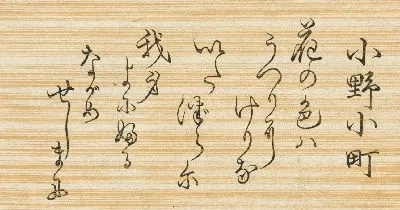 小野小町
花の色ハ
うつりに
けりな
いたづらに
我身
よにふる
ながめ
せしまに